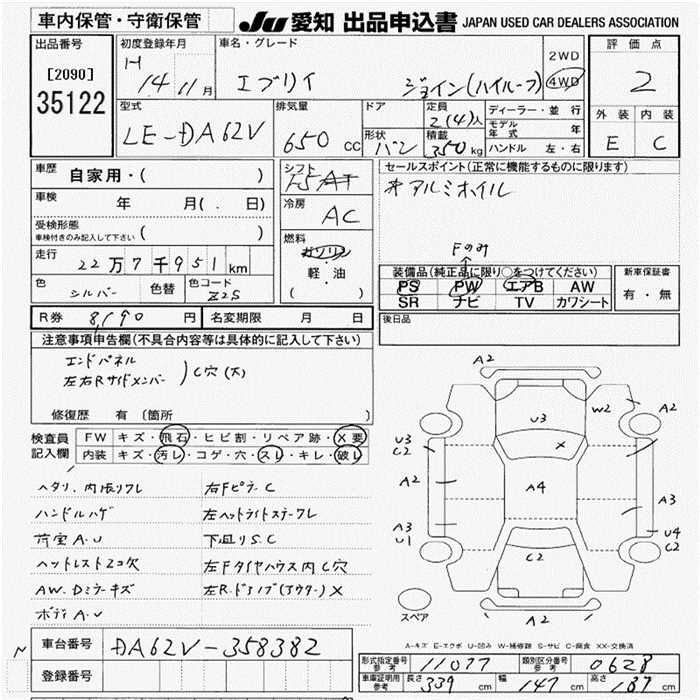 車内保管・守衛保管
JU 愛知 出品申込書 JAPAN USED CAR DEALERS ASSOCIATION
出品番号 初度登録年月 車名・グレード 2WD 評価点
[2090] H 14年 11月 エブリイ ジョイン(ハイルーフ) 4WD 2
35122
型式 排気量 ドア 定員 2(4)人 ディーラー・並行 外装 内装
LE-DA62V 650 CC 形状 バン 積載 350 kg モデル年式 年 E C
ハンドル 左・右
車歴 自家用・( ) シフト F5 AT セールスポイント(正常に機能するものに限ります)
車検 年 月( . 日) 冷房 AC アルミホイル
受検形態 車検付きのみ記入して下さい ( )
燃料 ガソリン 軽・油 ( )
Fのみ
走行 22万7千951km 装備品(純正品に限り○をつけてください) 新車保証書
PS PW エアB AW 有・無
色 シルバー 色替 色コード Z2S SR ナビ TV カワシート
R券 8,190円 名変期限 月 日 後日品
注意事項申告欄(不具合内容等は具体的に記入して下さい)
エンドパネル
左右Rサイドメンバー )C穴(大)
修復歴 有 (箇所
検査員 FW キズ・飛石・ヒビ割・リペア跡・X要
記入欄 内装 キズ・汚レ・コゲ・穴・スレ・キレ・破レ
ヘタリ、内張リワレ 右FピラーC
ハンドルハゲ 左ヘッドライトステーワレ
荷室A.U 下廻りS.C
ヘッドレスト2コ欠 左Fタイヤハウス内C穴
AW.Dミラーキズ 左R.ドアノブ(アウター)X
ボディA.U
A2
U3 W2 A2
U3 C2 X
A2 A4 A3
A3 U1 U4 C2
C2
スペア A2
A-キズ E-エクボ U-凹み W-補修跡 S-サビ C-腐食 XX-交換済
N 車台番号 DA62V-358382
登録番号
形式指定番号 参考 11077 類別区分番号 参考 0628
車庫証明用 参考 長さ 339cm 幅 147cm 高さ 187cm